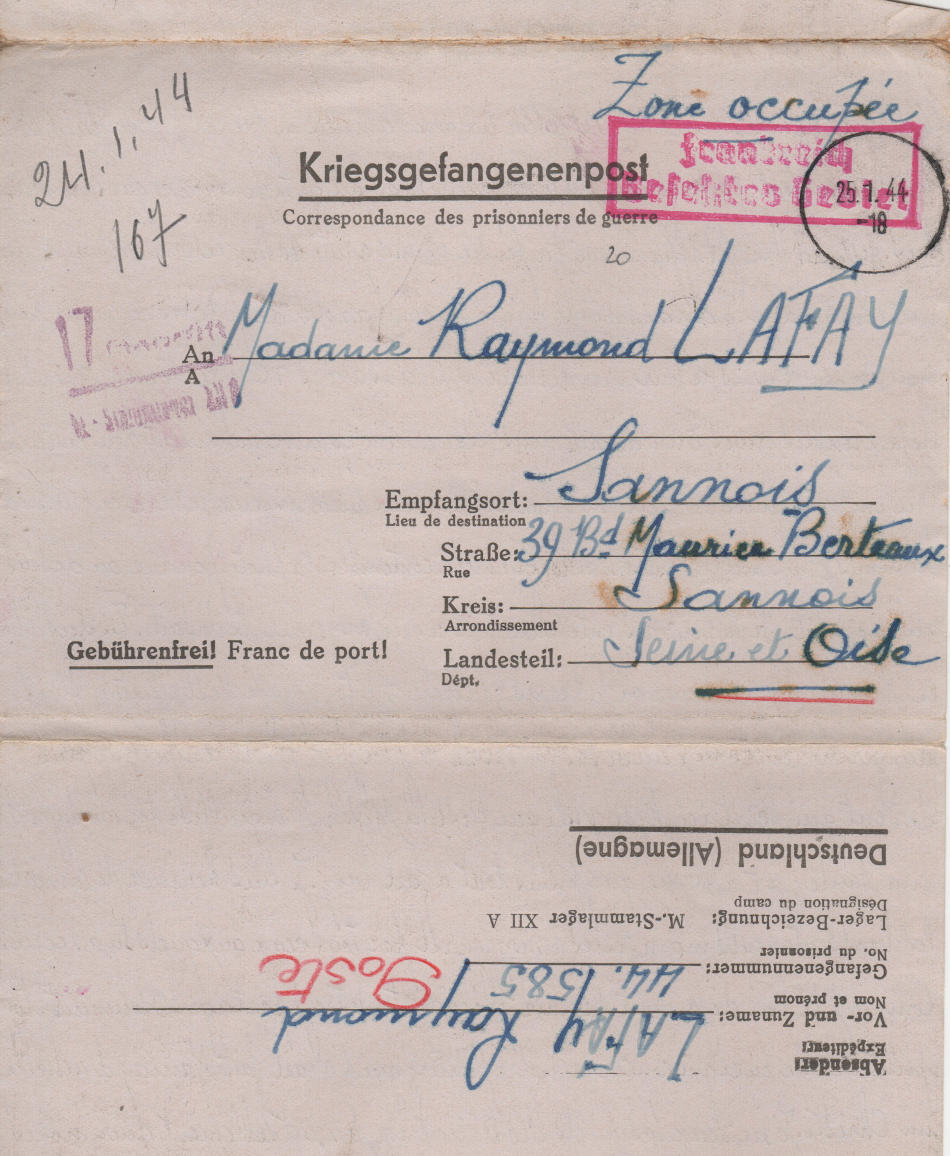 Zone occupée
24.1.44
Kriegsgefangenenpost
Frankreich
Besetztes Gebiet
25.1.44
-18
Correspondance des prisonniers de guerre
167
20
17
An Madame Raymond LAFAY
A
Empfangsort: Sannois
Lieu de destination
Straße: 39 Bd Maurice Berteaux
Rue
Kreis: Sannois
Arrondissement
Gebührenfrei! Franc de port!
Landesteil: Seine et Oise
Dépt.
Absender:
Expéditeur:
Vor- und Zuname: LAFAY Raymond
Nom et prénom
Gefangenennummer: 44.1585
No. du prisonnier
Lager-Bezeichnung: M.-Stammlager XII A
Désignation du camp
Deutschland (Allemagne)